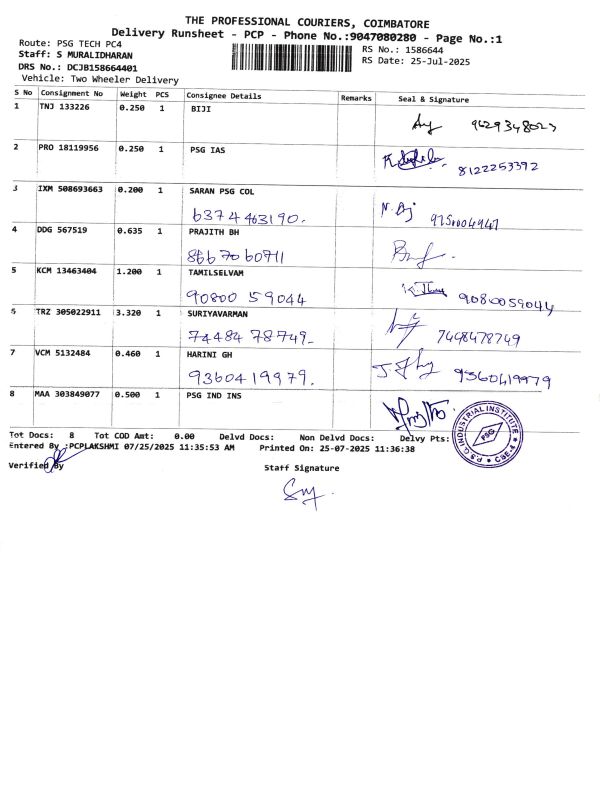 THE PROFESSIONAL COURIERS, COIMBATORE
Delivery Runsheet - PCP - Phone No.:9047080280 - Page No.:1
Route: PSG TECH PC4
Staff: S MURALIDHARAN
DRS No.: DCJB158664401
Vehicle: Two Wheeler Delivery
RS No.: 1586644
RS Date: 25-Jul-2025
S No Consignment No Weight PCS Consignee Details Remarks Seal & Signature
1 TNJ 133226 0.250 1 BIJI
2 PRO 18119956 0.250 1 PSG IAS
8122253392
3 IXM 508693663 0.200 1 SARAN PSG COL
6374463190.
4 DDG 567519 0.635 1 PRAJITH BH
8667060711
5 KCM 13463404 1.200 1 TAMILSELVAM
90800 59044 9080059044
6 TRZ 305022911 3.320 1 SURIYAVARMAN
74484 78749. 7448478749
7 VCM 5132484 0.460 1 HARINI GH
9360419979. 9360419979
8 MAA 303849077 0.500 1 PSG IND INS
P.S.G. INDUSTRIAL INSTITUTE
PSG
CBE-4
Tot Docs: 8 Tot COD Amt: 0.00 Delvd Docs: Non Delvd Docs: Delvy Pts:
Entered By :PCPLAKSHMI 07/25/2025 11:35:53 AM Printed On: 25-07-2025 11:36:38
Verified By Staff Signature